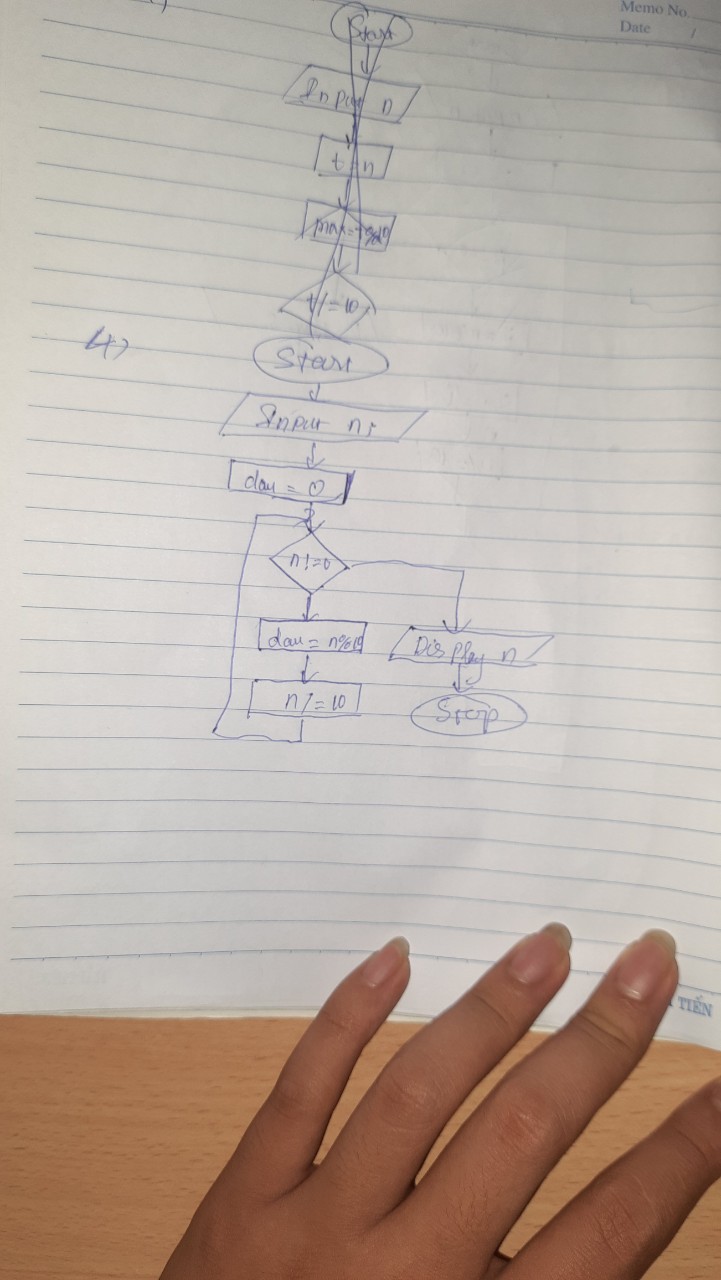 Memo No.
Date /
Start
Input n
t = n
max = t%10
t/=10
4)
Start
Input n;
dau = 0
n!=0
dau = n%10
Display n
n/=10
Stop
TIẾN